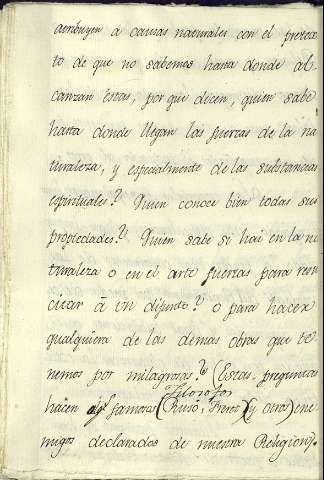 atribuyen à causas naturales con el pretex-
to de que no sabemos hasta donde al-
canzan éstas, por que dicen, quien sabe
hasta donde llegan las fuerzas de la na-
turaleza, y especialmente de las substancias
espirituales? Quien conoce bien todas sus
propiedades? Quien sabe si hai en la na-
turaleza o en el arte fuerzas para resu-
citar à un difunto? o para hacer
qualquiera de las demas obras que te-
nemos por milagrosas? (Estas preguntas
Filosofos
hacen famosos (Rusó, (y otros) ene-
migos declarados de nuestra Religion).